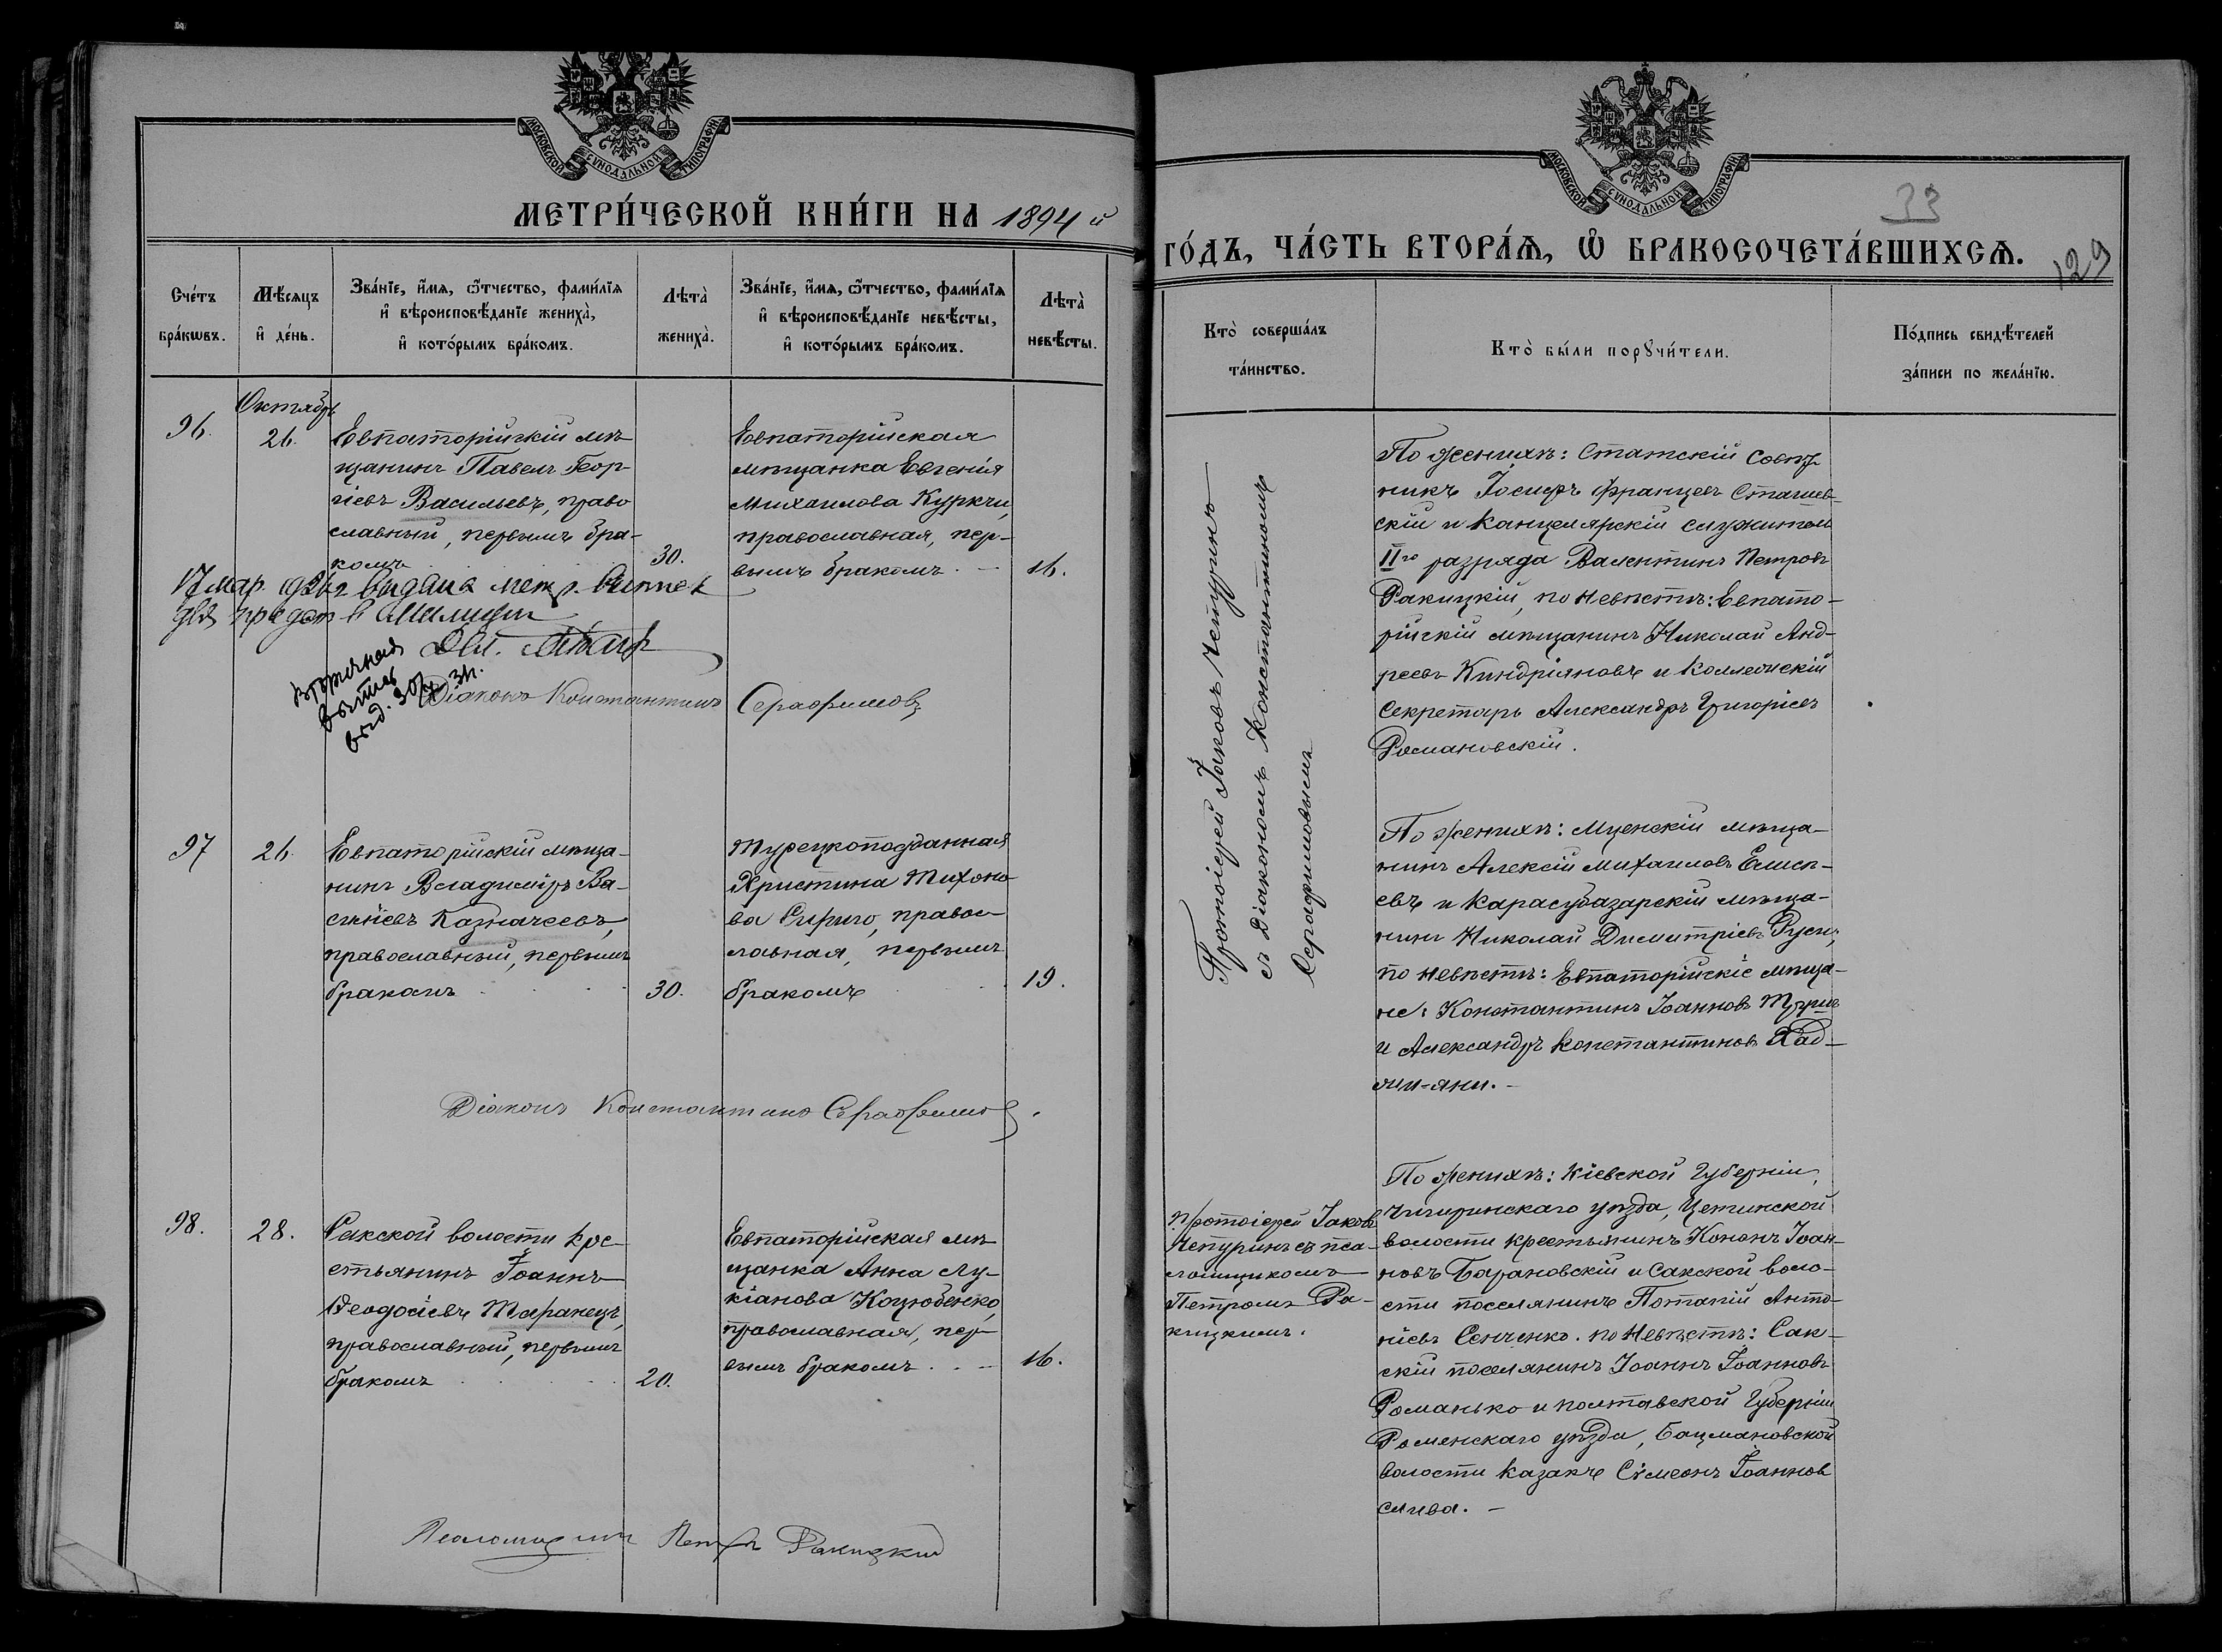 МОСКОВСКОЙ СУНОДАЛЬНОЙ ТИПОГРАФІИ
МЕТРИ́ЧЕСКОЙ КНИ́ГИ НА 1894 й
Сче́тъ бра́кѡвъ.
Мѣ́сяцъ и҆ де́нь.
Зва́нїе, и҆́мѧ, ѻ҆́тчество, фами́лїѧ
и҆ вѣроисповѣ́данїе жениха̀,
и҆ кото́рымъ бра́комъ.
Лѣта̀ жениха̀.
Зва́нїе, и҆́мѧ, ѻ҆́тчество, фами́лїѧ
и҆ вѣроисповѣ́данїе невѣ́сты,
и҆ кото́рымъ бра́комъ.
Лѣта̀ невѣ́сты.
Октябрь
96.
26.
Евпаторійскій мѣ-
щанинъ Павелъ Геор-
гіевъ Васильевъ, право
славный, первымъ бра-
комъ
30.
Евпаторійская
мѣщанка Евгенія
Михаилова Куркчи,
православная, пер-
вымъ бракомъ. —
16.
выдана
вторичная
выпись
выд. 30/X 31.
Діаконъ Константинъ Серафимовъ
97
26.
Евпаторійскій мѣща-
нинъ Владиміръ Ва-
сильевъ Казначеевъ,
православный, первымъ
бракомъ
30.
Турецкоподданная
Христина Тихоно-
ва Сириго, правос-
лавная, первымъ
бракомъ
19.
Діаконъ Константинъ Серафимовъ.
98.
28.
Сакской волости крес-
стьянинъ Іоаннъ
Ѳеодосіевъ Таранецъ,
православный, первымъ
бракомъ
20.
Евпаторійская мѣ-
щанка Анна Лу-
кіанова Коцюбенко,
православная, пер-
вымъ бракомъ. . —
16.
Псаломщикъ Петръ Ракицкій
МОСКОВСКОЙ СУНОДАЛЬНОЙ ТИПОГРАФІИ
33
129
ГО́ДЪ, ЧА́СТЬ ВТОРА́Ѧ, Ѡ҆ БРАКОСОЧЕТА́ВШИХСѦ.
Кто̀ соверша́лъ
та́инство.
Кто̀ бы́ли порꙋчи́тели.
По́дпись свидѣ́телей
за́писи по жела́нїю.
Протоіерей Іаковъ Чепуринъ
съ Діакономъ Константиномъ
Серафимовымъ
По женихѣ: Статскій Совѣт-
никъ Іосифъ Францевъ Сташев-
скій и Канцелярскій служитель
IIго разряда Валентинъ Петровъ
Ракицкій, по невѣстѣ: Евпато-
рійскій мѣщанинъ Николай Анд-
реевъ Киндріяновъ и Коллежскій
Секретарь Александръ Григоріевъ
Романовскій.
По женихѣ: Мценскій мѣща-
нинъ Алексій Михаиловъ Елисѣ-
евъ и Карасубазарскій мѣща-
нинъ Николай Димитріевъ Руси,
по невѣстѣ: Евпаторійскіе мѣща-
не: Константинъ Іоанновъ
и Александръ Константиновъ Хад-
жи-яни. —
Протоіерей Іаковъ
Чепуринъ съ пса-
ломщикомъ
Петромъ Ра-
кицкимъ.
По женихѣ: Кіевской Губерніи,
Чигиринскаго уѣзда,
волости крестьянинъ Кононъ Іоан-
новъ Барановскій и Сакской воло-
сти поселянинъ Потапій Анто-
ніевъ Сенченко. по невѣстѣ: Сак-
скій поселянинъ Іоаннъ Іоанновъ
Романько и Полтавской Губерніи
Роменскаго уѣзда, Бацмановской
волости казакъ Сѵмеонъ Іоаннов
Слива. —